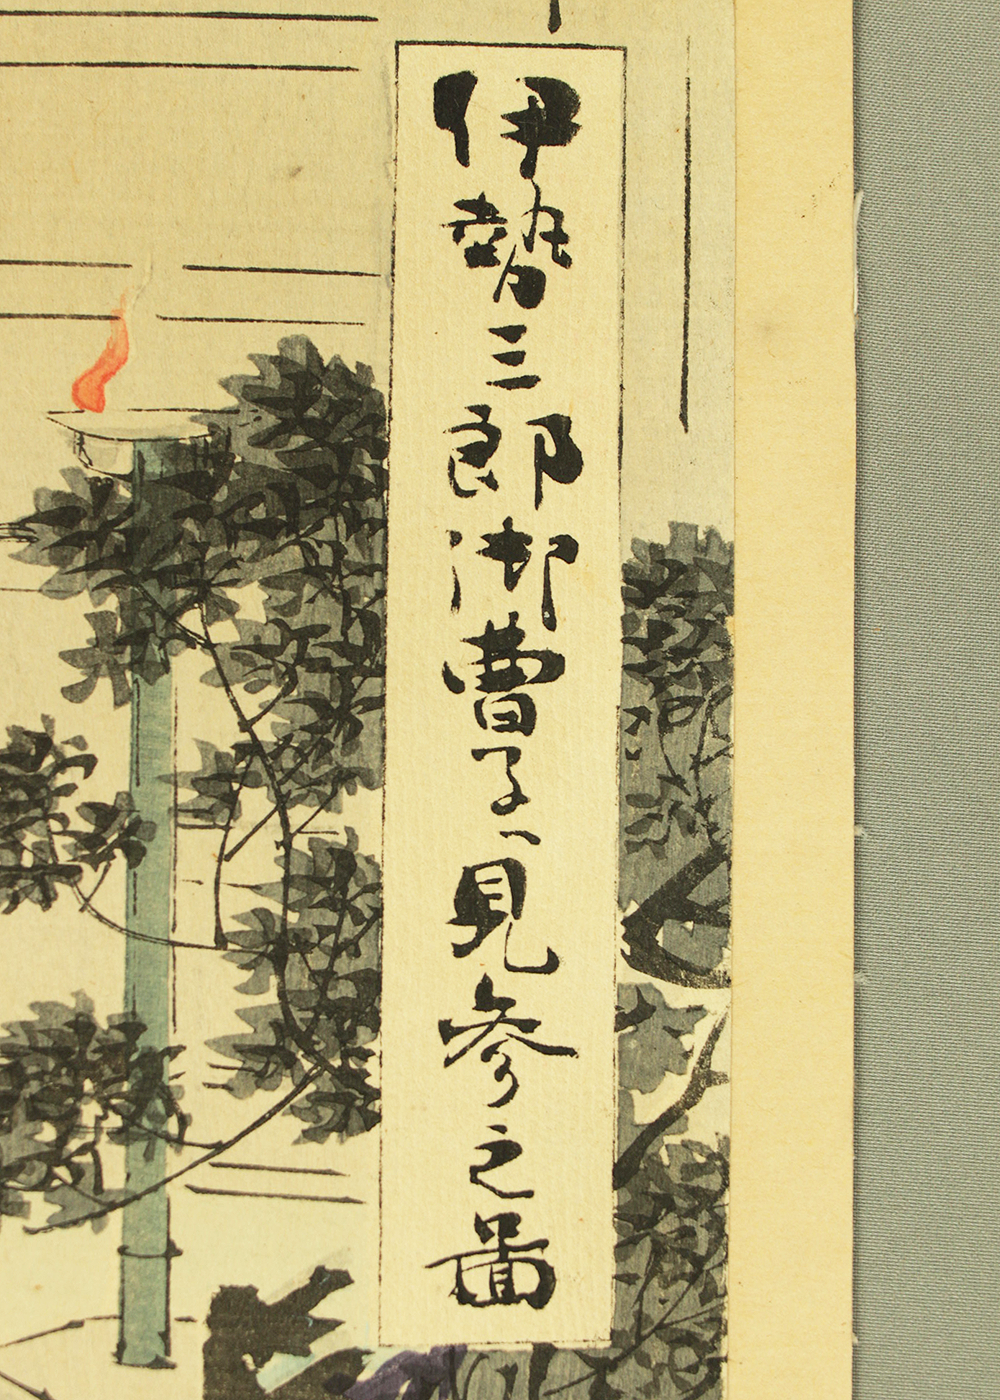 伊勢三郎御曹子へ見参之図